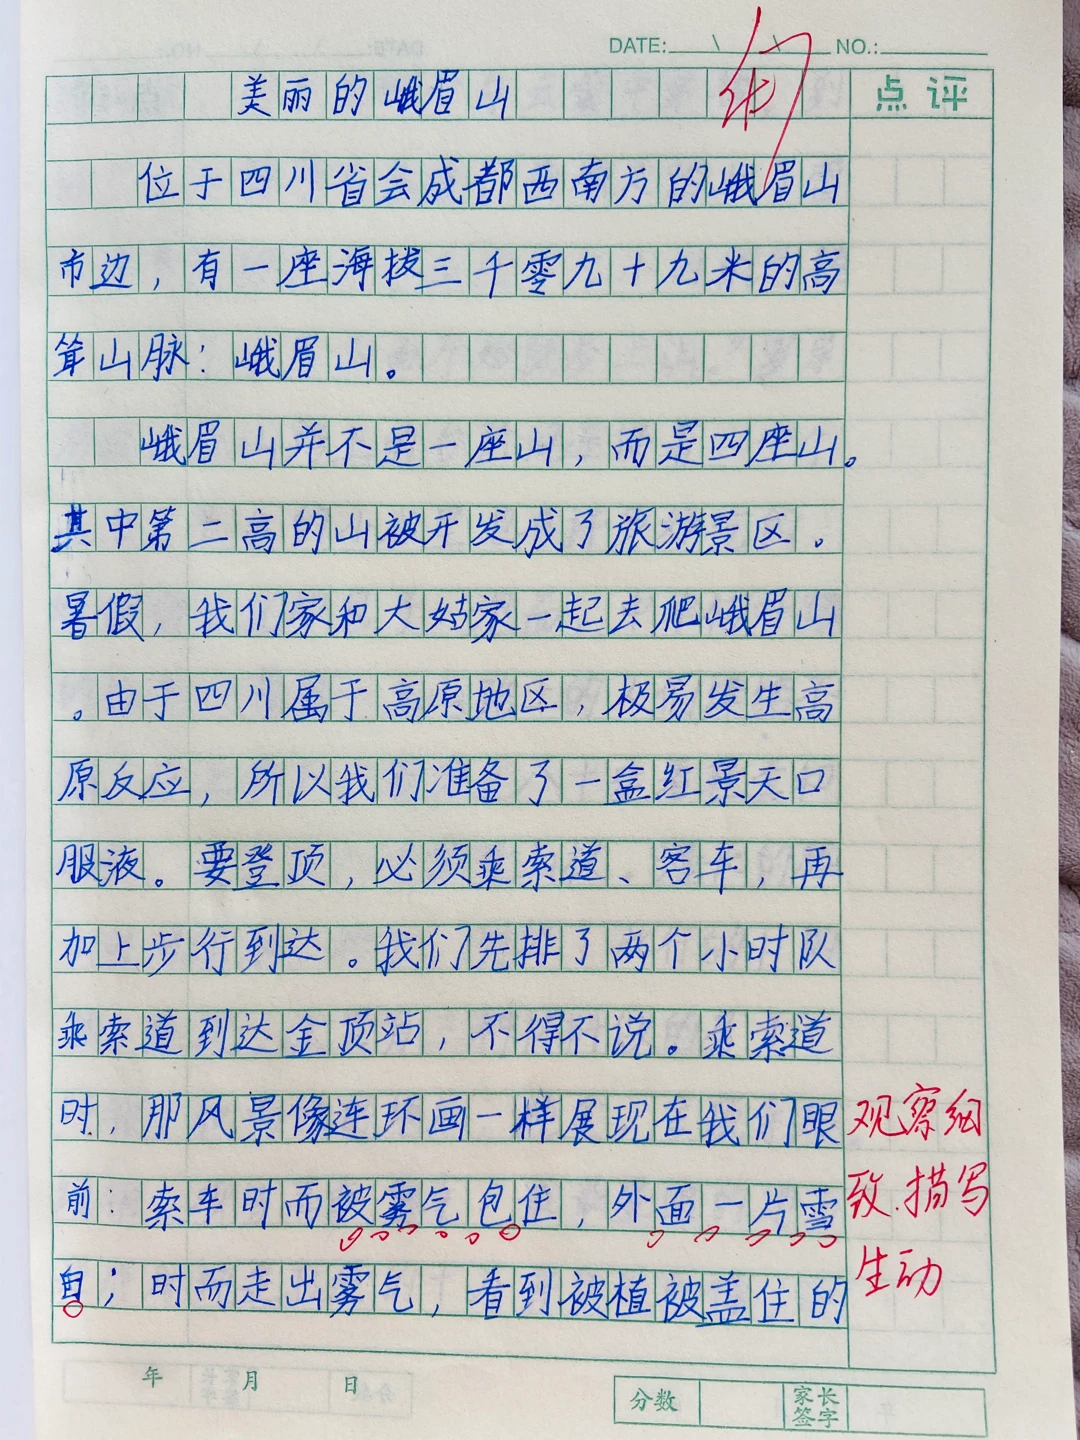 DATE: \ \ NO.:
美丽的峨眉山
点评
位于四川省会成都西南方的峨眉山
市边，有一座海拔三千零九十九米的高
耸山脉：峨眉山。
峨眉山并不是一座山，而是四座山。
其中第二高的山被开发成了旅游景区。
暑假，我们家和大姑家一起去爬峨眉山
。由于四川属于高原地区，极易发生高
原反应，所以我们准备了一盒红景天口
服液。要登顶，必须乘索道、客车，再
加上步行到达。我们先排了两个小时队
乘索道到达金顶站，不得不说。乘索道
时，那风景像连环画一样展现在我们眼
前：索车时而被雾气包住，外面一片雪
白；时而走出雾气，看到被植被盖住的
观察细
致.描写
生动
年 月 日
分数
家长
签字